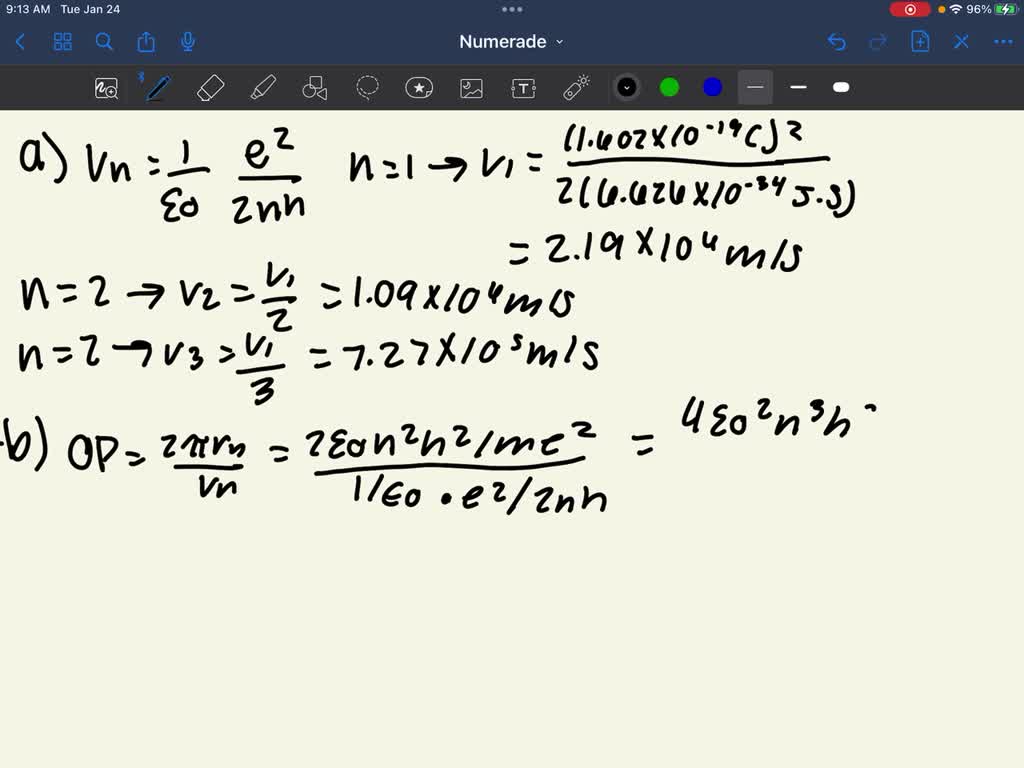 9:13 AM Tue Jan 24
96%
Numerade
a) Vn = 1/ε0 e²/2nh n=1 → V1 = (1.602×10⁻¹⁹C)²/2(6.626×10⁻³⁴J·s)
= 2.19×10⁶m/s
n=2 → V2 = V1/2 = 1.09×10⁶m/s
n=2 → V3 = V1/3 = 7.27×10⁵m/s
b) OP = 2πrn/Vn = 2ε0n²h²/me² / 1/ε0·e²/2nh = 4ε0²n³h